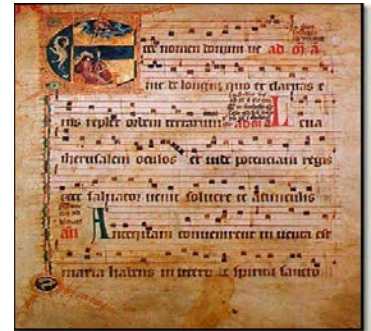 cce nomen domini ue ad m̄ a
nit de longin quo et claritas e
ius replet orbem terrarum L eua
iherusalem oculos et uide potenciam regis
ecce saluator uenit soluere te a uinculis
A ntequam conuenirent in uenta est
maria habens in utero de spiritu sancto